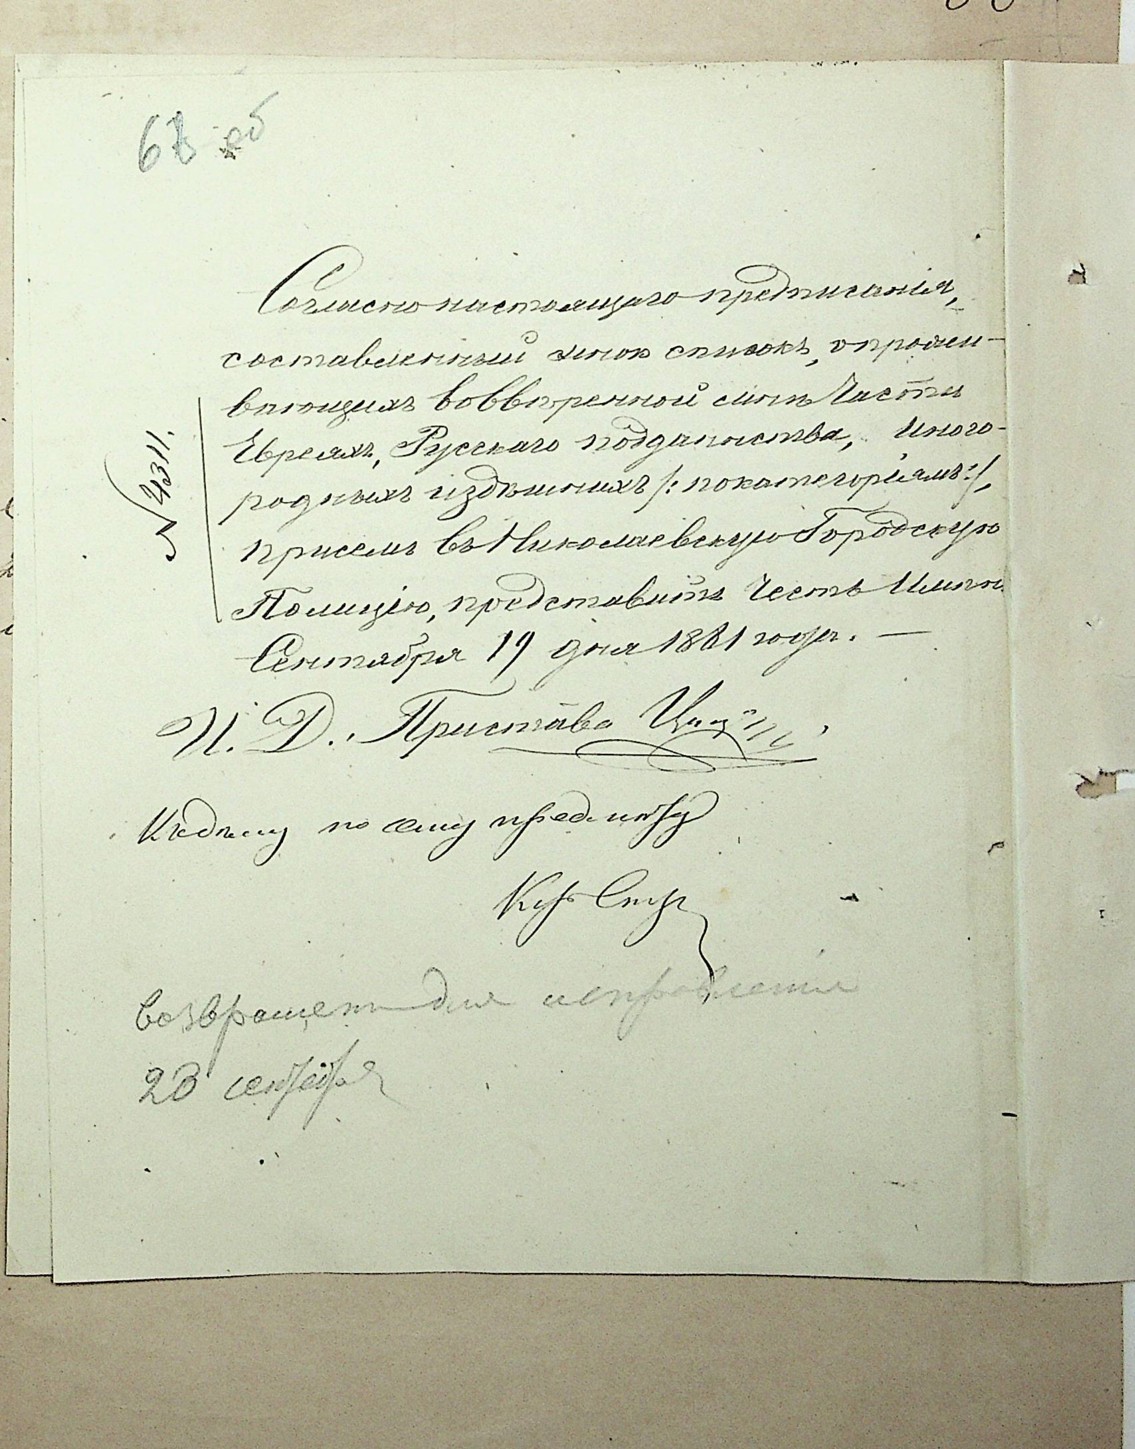 68 об
Согласно настоящаго предписанія,
составленный мною списокъ, о прожи-
вающихъ во ввѣренной мнѣ Части
Евреяхъ, Русскаго подданства, Иного-
родныхъ и здѣшнихъ /: по категоріямъ:/,
№ 4311.
при семъ въ Николаевскую Городскую
Полицію, представить Честь Имѣю.
Сентября 19 дня 1881 года. —
И. Д. Пристава
Къ дѣлу по сему предмету
возвращен для исправления
20 сентября